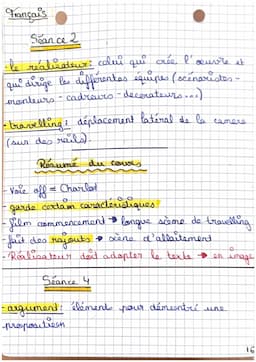 Français
Séance 2
- le réalisateur: celui qui crée l'œuvre et
qui dirige les différentes équipes (scénaristes -
monteurs - cadreurs - décorateurs...)
- travelling: déplacement latéral de la camera
(sur des rails).
Résumé du cours
- Voie off = Charlot
- garde certain caractéristiques
- film commencement → longue scène de travelling
- fait des rajouts → scène d'allaitement
- Réalisateur doit adapter le texte → en image
Séance 4
- argument: élément pour démontré une
proposition
16